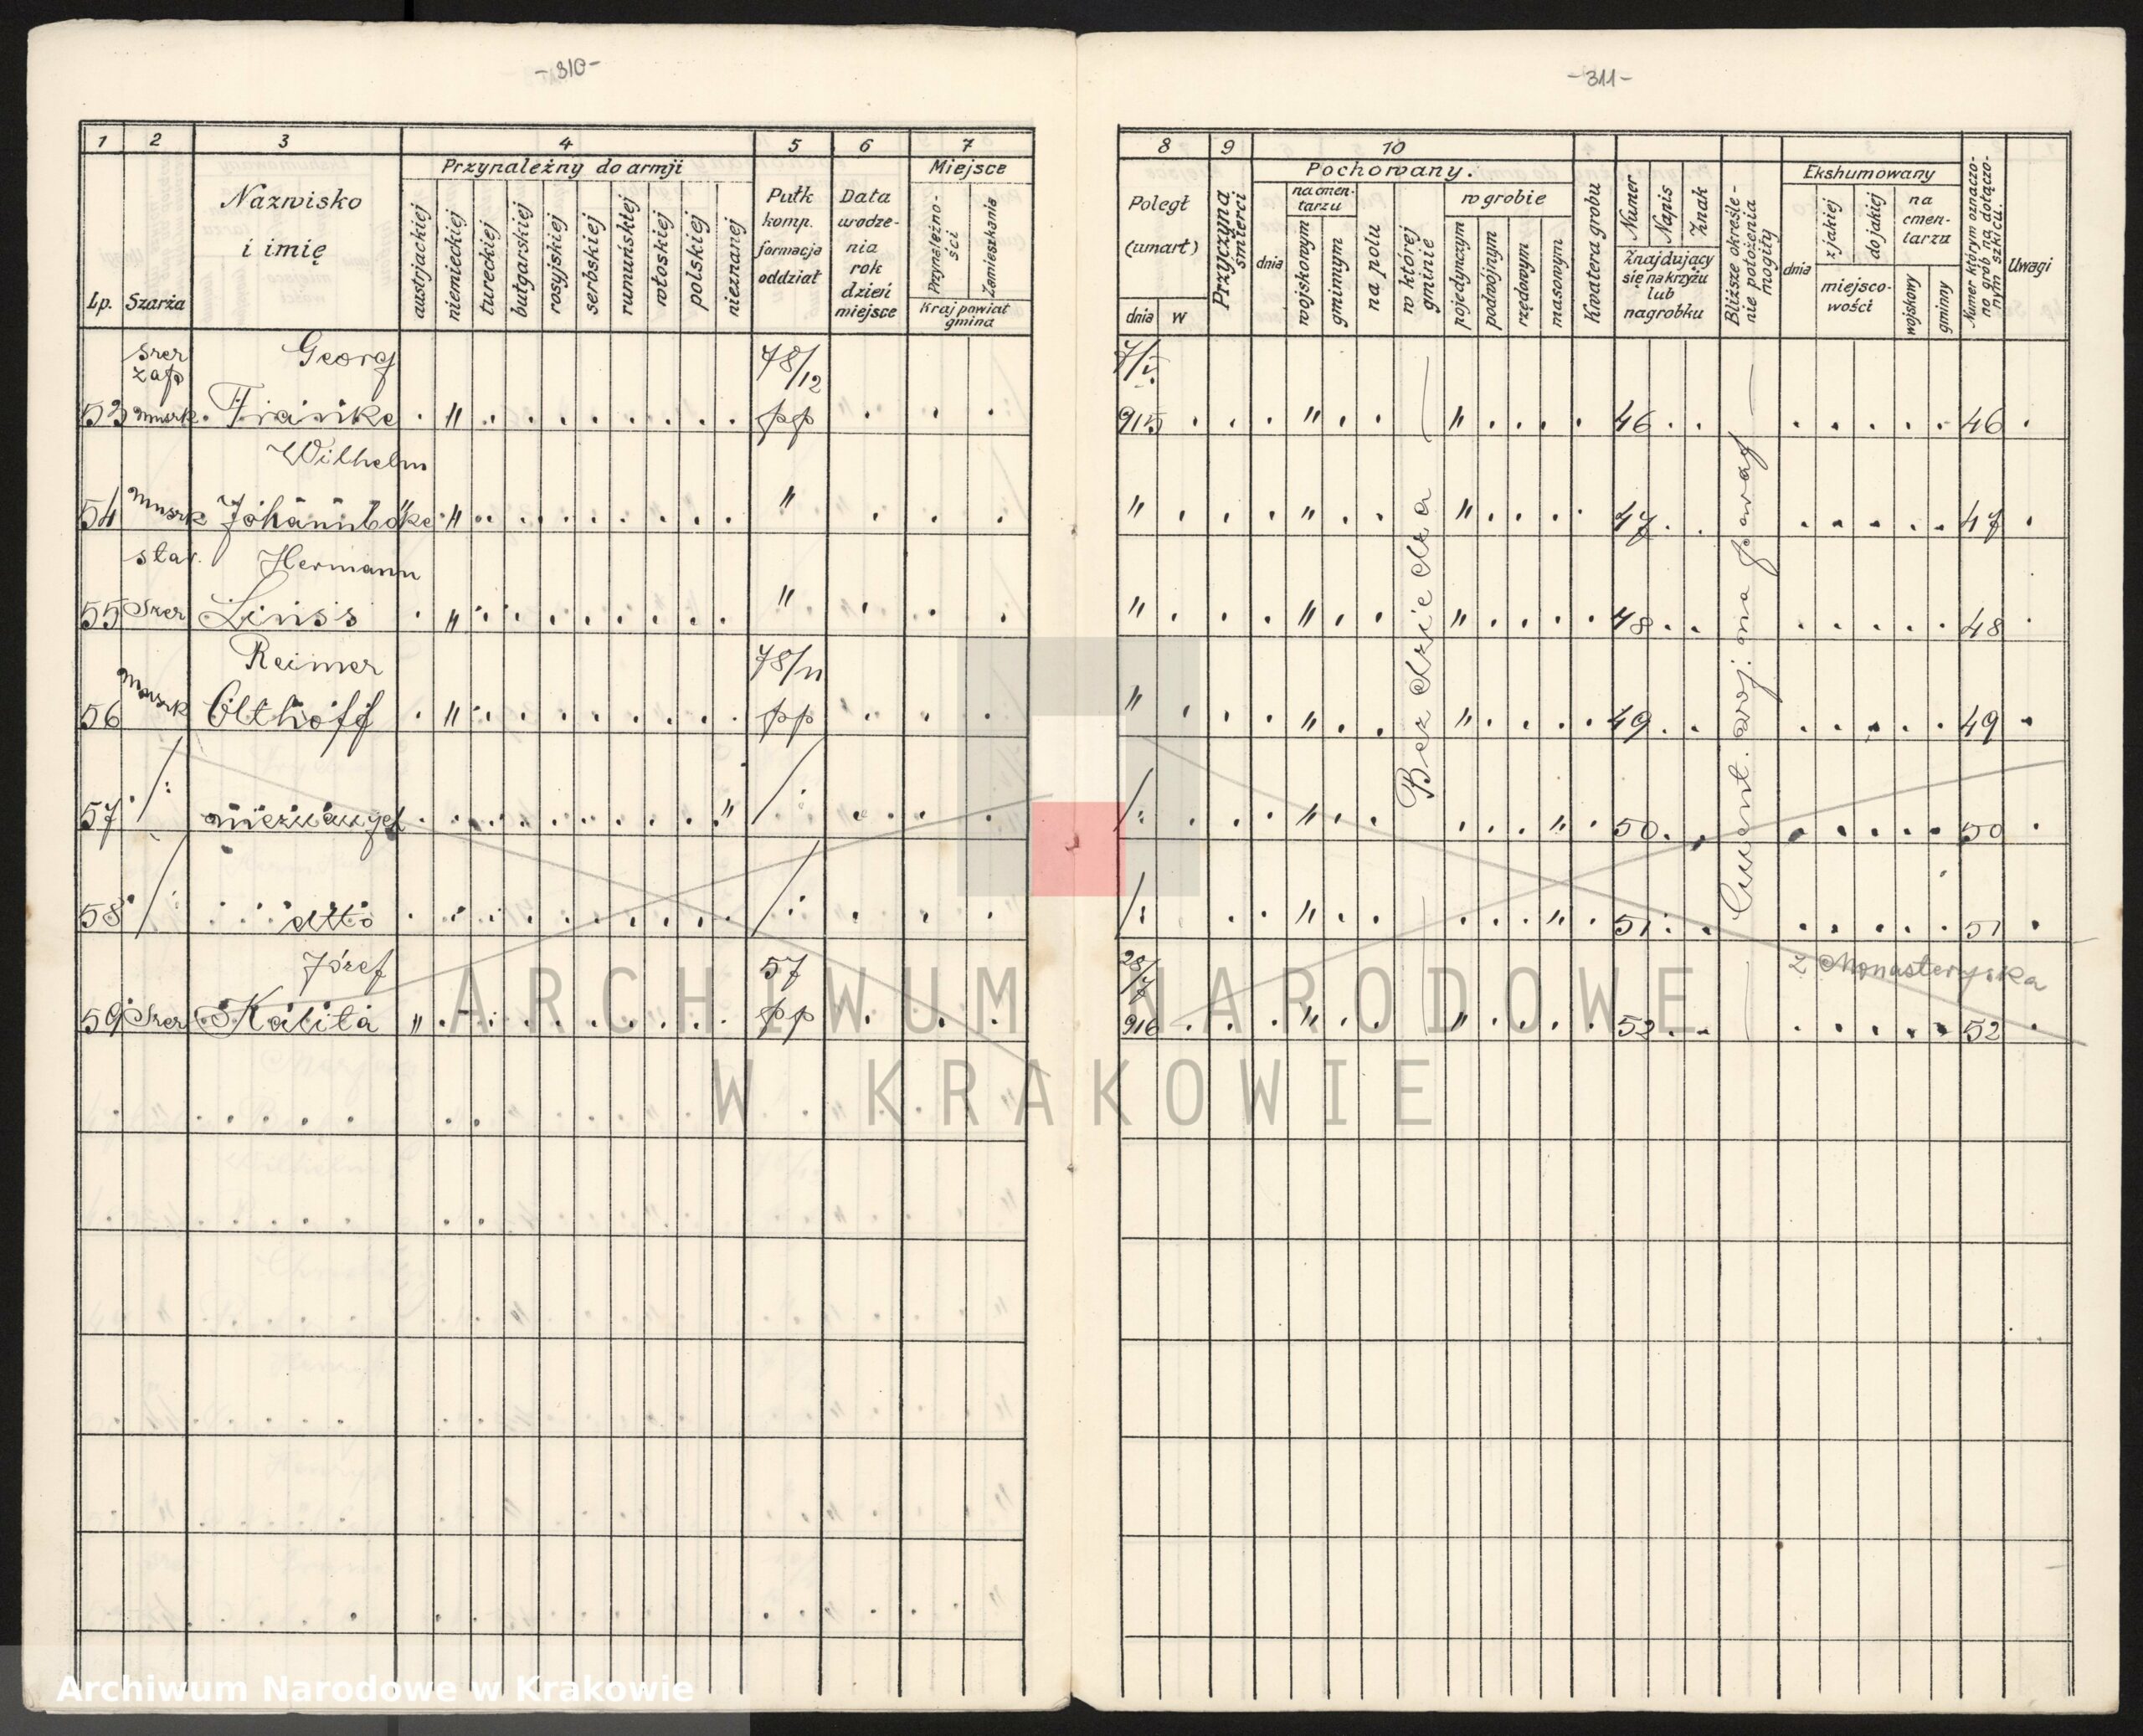 -310-
1 2 3 4 5 6 7
Lp.
Szarża
Nazwisko
i imię
Przynależny do armji
austrjackiej
niemieckiej
tureckiej
bułgarskiej
rosyjskiej
serbskiej
rumuńskiej
włoskiej
polskiej
nieznanej
Pułk
komp.
formacja
oddział
Data
urodze-
nia
rok
dzień
miejsce
Miejsce
Przynależno-
ści
Zamieszkania
Kraj powiat
gmina
szer
zap Georg 78/12
53 musrk. Franke . " . . . . . . . . pp . . .
Wilhelm
54 musrk " . . . . . . . . " . . .
star. Hermann
55 Szer Linss . " . . . . . . . . " . . .
Reimer 78/11
56 musrk Olthoff . " . . . . . . . . pp . . .
57 /. nieznany . . . . . . . . . " /. . . .
58 /. dtto . . . . . . . . . . /. . . .
Józef 57
59 Szer Kalita " . . . . . . . . . pp . . .
-311-
8 9 10
Poległ
(umart)
dnia w
Przyczyna
śmierci
Pochowany.
dnia
na cmen-
tarzu
wojskowym
gminnym
na polu
w której
gminie
w grobie
pojedynczym
podwójnym
rzędowym
masowym
Kwatera grobu
Numer
Napis
Znak
Znajdujący
się na krzyżu
lub
nagrobku
Bliższe określe-
nie położenia
mogiły
Ekshumowany
dnia
z jakiej
do jakiej
miejsco-
wości
na
cmen-
tarzu
wojskowy
gminny
Numer którym oznaczo-
no grób na dołączo-
nym szkicu.
Uwagi
Bezdziedza
Cment. woj. na
7/V.
915 . . . " . . " . . . . 46 . . . . . . . 46 .
" . . . " . . " . . . . 47 . . . . . . . 47 .
" . . . " . . " . . . . 48 . . . . . . . 48 .
" . . . " . . " . . . . 49 . . . . . . . 49 .
/. . . . " . . . . . " . 50 . . . . . . . 50 .
/. . . " . . . . . " . 51 . . . . . . . 51 .
28/7 z Monasteryska
916 . . . " . . " . . . . 52 . . . . . . . 52 .
ARCHIWUM NARODOWE
W KRAKOWIE
Archiwum Narodowe w Krakowie